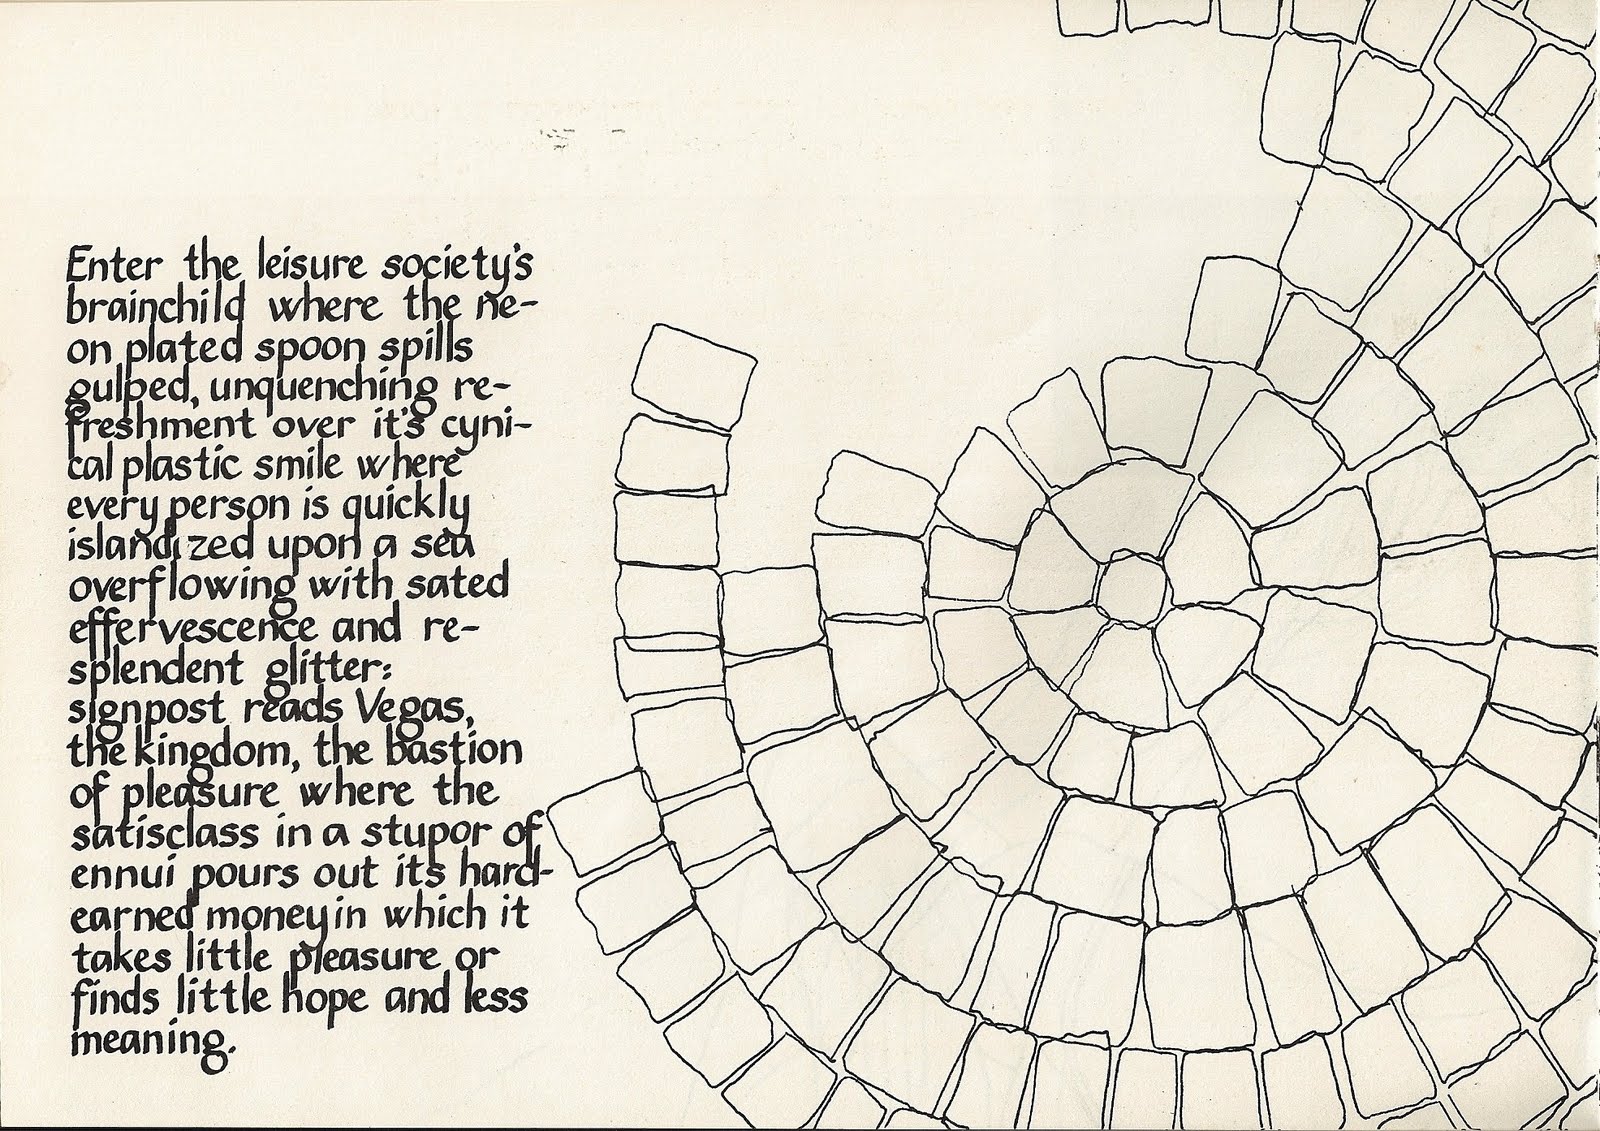 Enter the leisure society's
brainchild where the ne-
on plated spoon spills
gulped, unquenching re-
freshment over it's cyni-
cal plastic smile where
every person is quickly
islandized upon a sea
overflowing with sated
effervescence and re-
splendent glitter:
signpost reads Vegas,
the kingdom, the bastion
of pleasure where the
satisclass in a stupor of
ennui pours out its hard-
earned money in which it
takes little pleasure or
finds little hope and less
meaning.